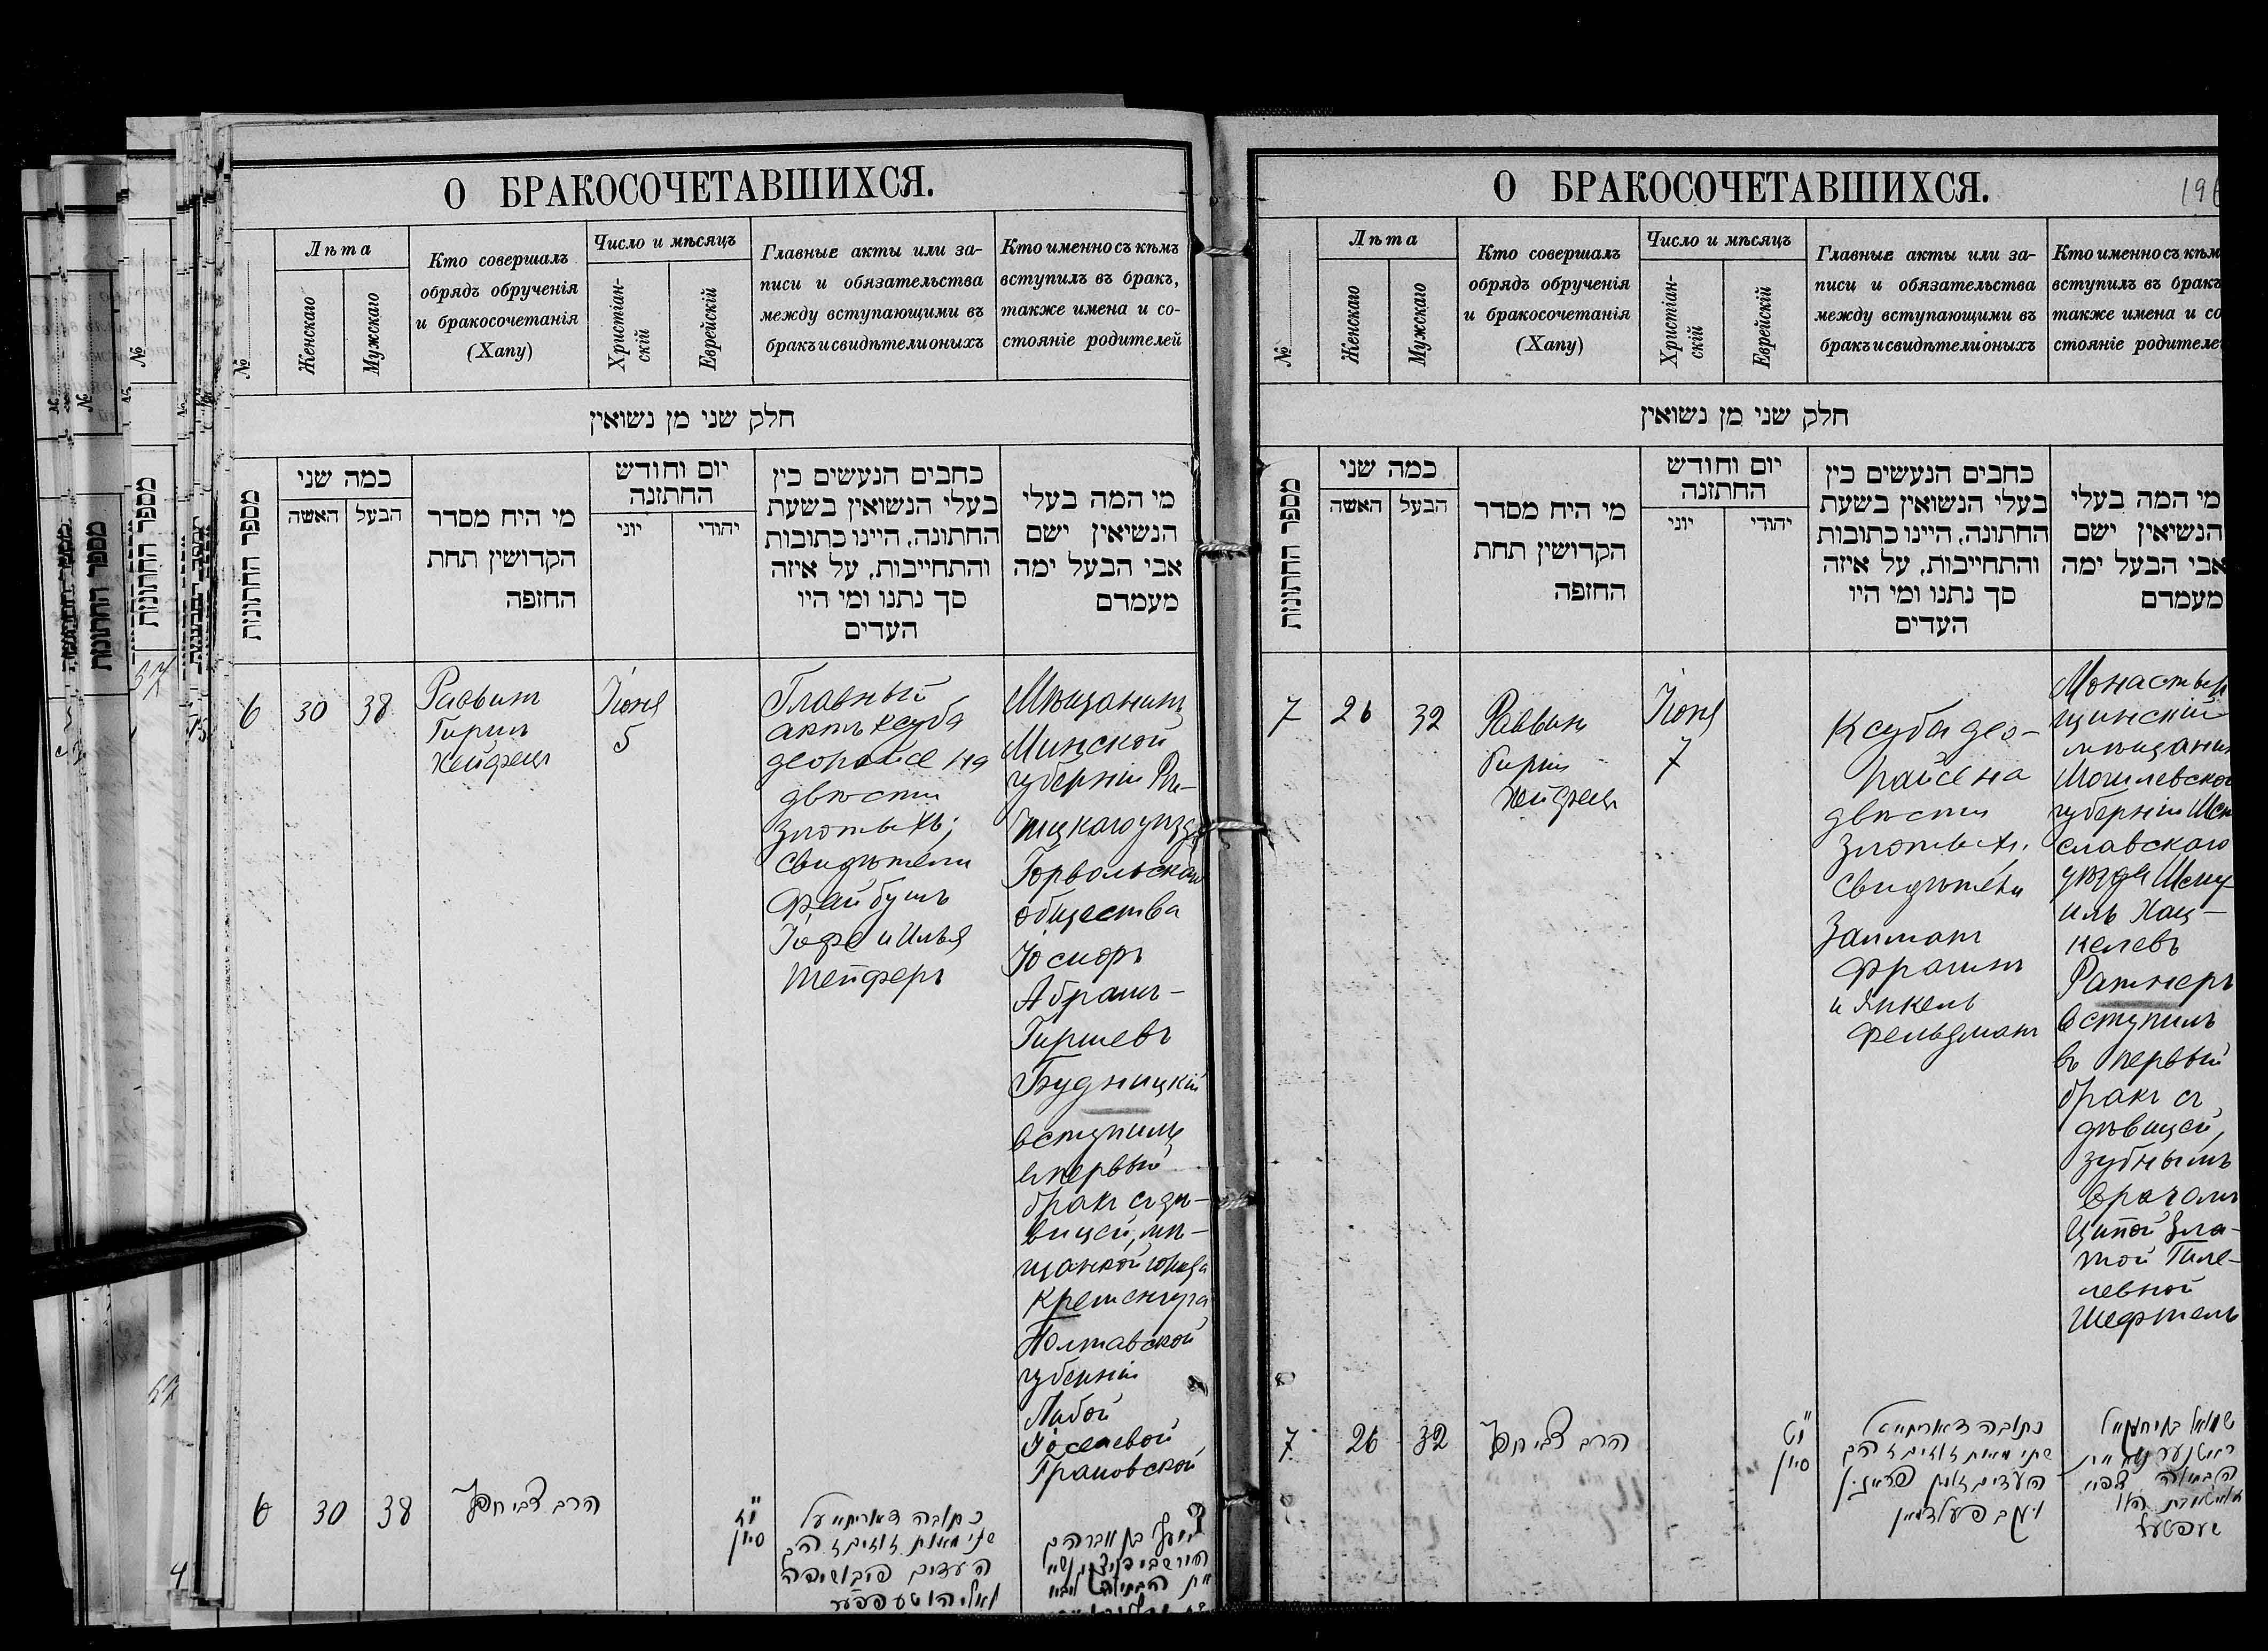 О БРАКОСОЧЕТАВШИХСЯ.
№
Лѣта
Женскаго
Мужскаго
Кто совершалъ
обрядъ обрученія
и бракосочетанія
(Хапу)
Число и мѣсяцъ
Христіан-
скій
Еврейскій
Главные акты или за-
писи и обязательства
между вступающими въ
бракъ и свидѣтели оныхъ
Кто именно съ кѣмъ
вступилъ въ бракъ,
также имена и со-
стояніе родителей
חלק שני מן נשואין
מספר החתונות
כמה שני
האשה
הבעל
מי היח מסדר
הקדושין תחת
החזפה
יום וחודש
החתזנה
יוני
יהודי
כחבים הנעשים כין
בעלי הנשואין בשעת
החתונה, היינו כתובות
והתחייבות, על איזה
סך נתנו ומי היו
העדים
מי המה בעלי
הנשיאין ישם
אבי הבעל ימה
מעמדם
6
30
38
Раввинъ
Гиршъ
Хейфецъ
Іюня
5
Главный
актъ ксуба
деорайсе на
двѣсти
злотыхъ;
свидѣтели
Файбушъ
Іофе и Илья
Тейферъ
Мѣщанинъ
Минской
губерніи Рѣ-
чицкаго уѣзда
Горвольскаго
общества
Іосифъ
Абрамъ-
Гиршевъ
Будницкій
вступилъ
въ первый
бракъ съ дѣ-
вицей, мѣ-
щанкой города
Кременчуга
Полтавской
губерніи
Либой
Іоселевой
Грановской
6
30
38
הרב צבי חפץ
י״ז
סיון
כתובה דאורייתא על
שתי מאות זוזים זהב
העדים פייבוש יפה
ואליהו טעפפער
יוסף בן אברהם
הירש בודניצקי נשא
את הבתולה ליבא
О БРАКОСОЧЕТАВШИХСЯ.
196
№
Лѣта
Женскаго
Мужскаго
Кто совершалъ
обрядъ обрученія
и бракосочетанія
(Хапу)
Число и мѣсяцъ
Христіан-
скій
Еврейскій
Главные акты или за-
писи и обязательства
между вступающими въ
бракъ и свидѣтели оныхъ
Кто именно съ кѣм
вступилъ въ бракъ
также имена и со
стояніе родителе
חלק שני מן נשואין
מספר החתונות
כמה שני
האשה
הבעל
מי היח מסדר
הקדושין תחת
החזפה
יום וחודש
החתזנה
יוני
יהודי
כחבים הנעשים כין
בעלי הנשואין בשעת
החתונה, היינו כתובות
והתחייבות, על איזה
סך נתנו ומי היו
העדים
מי המה בעלי
הנשיאין ישם
אבי הבעל ימה
מעמדם
7
26
32
Раввинъ
Гиршъ
Хейфецъ
Іюня
7
Ксуба део-
райсе на
двѣсти
злотыхъ.
Свидѣтели
Залманъ
Фрадинъ
и Янкель
Фельдманъ
Монастыр
щинскій
мѣщанин
Могилевской
губерніи Мсти
славскаго
уѣзда Шму-
илъ Хац-
келевъ
Ратнеръ
вступилъ
въ первый
бракъ съ
дѣвицей,
зубнымъ
врачомъ
Ципой Зла-
той Гиле-
левной
Шефтель
7
26
32
הרב צבי חפץ
י״ט
סיון
כתובה דאורייתא על
שתי מאות זוזים זהב
העדים זלמן פראדין
ויעקב פעלדמאן
שמואל בן יחזקאל
ראטנער נשא את
הבתולה ציפא
שעפטעל